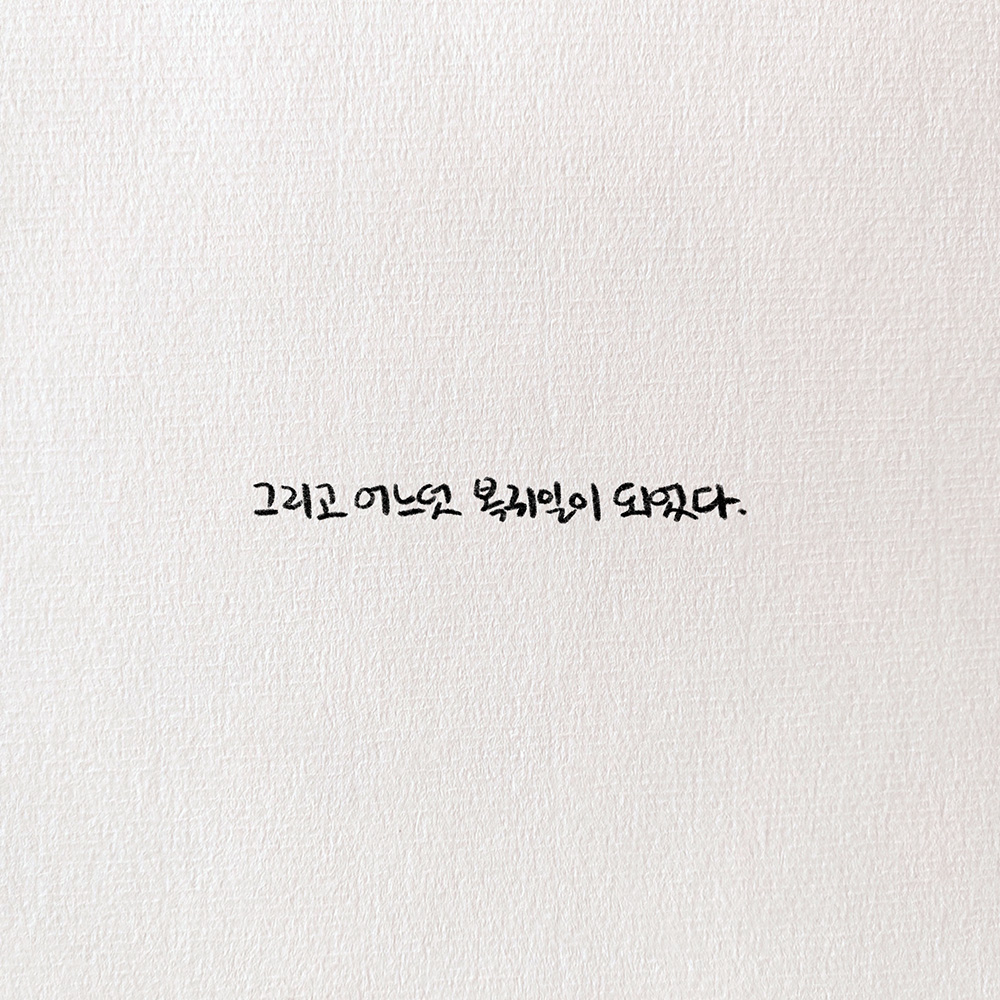 그리고 어느덧 복귀일이 되었다.